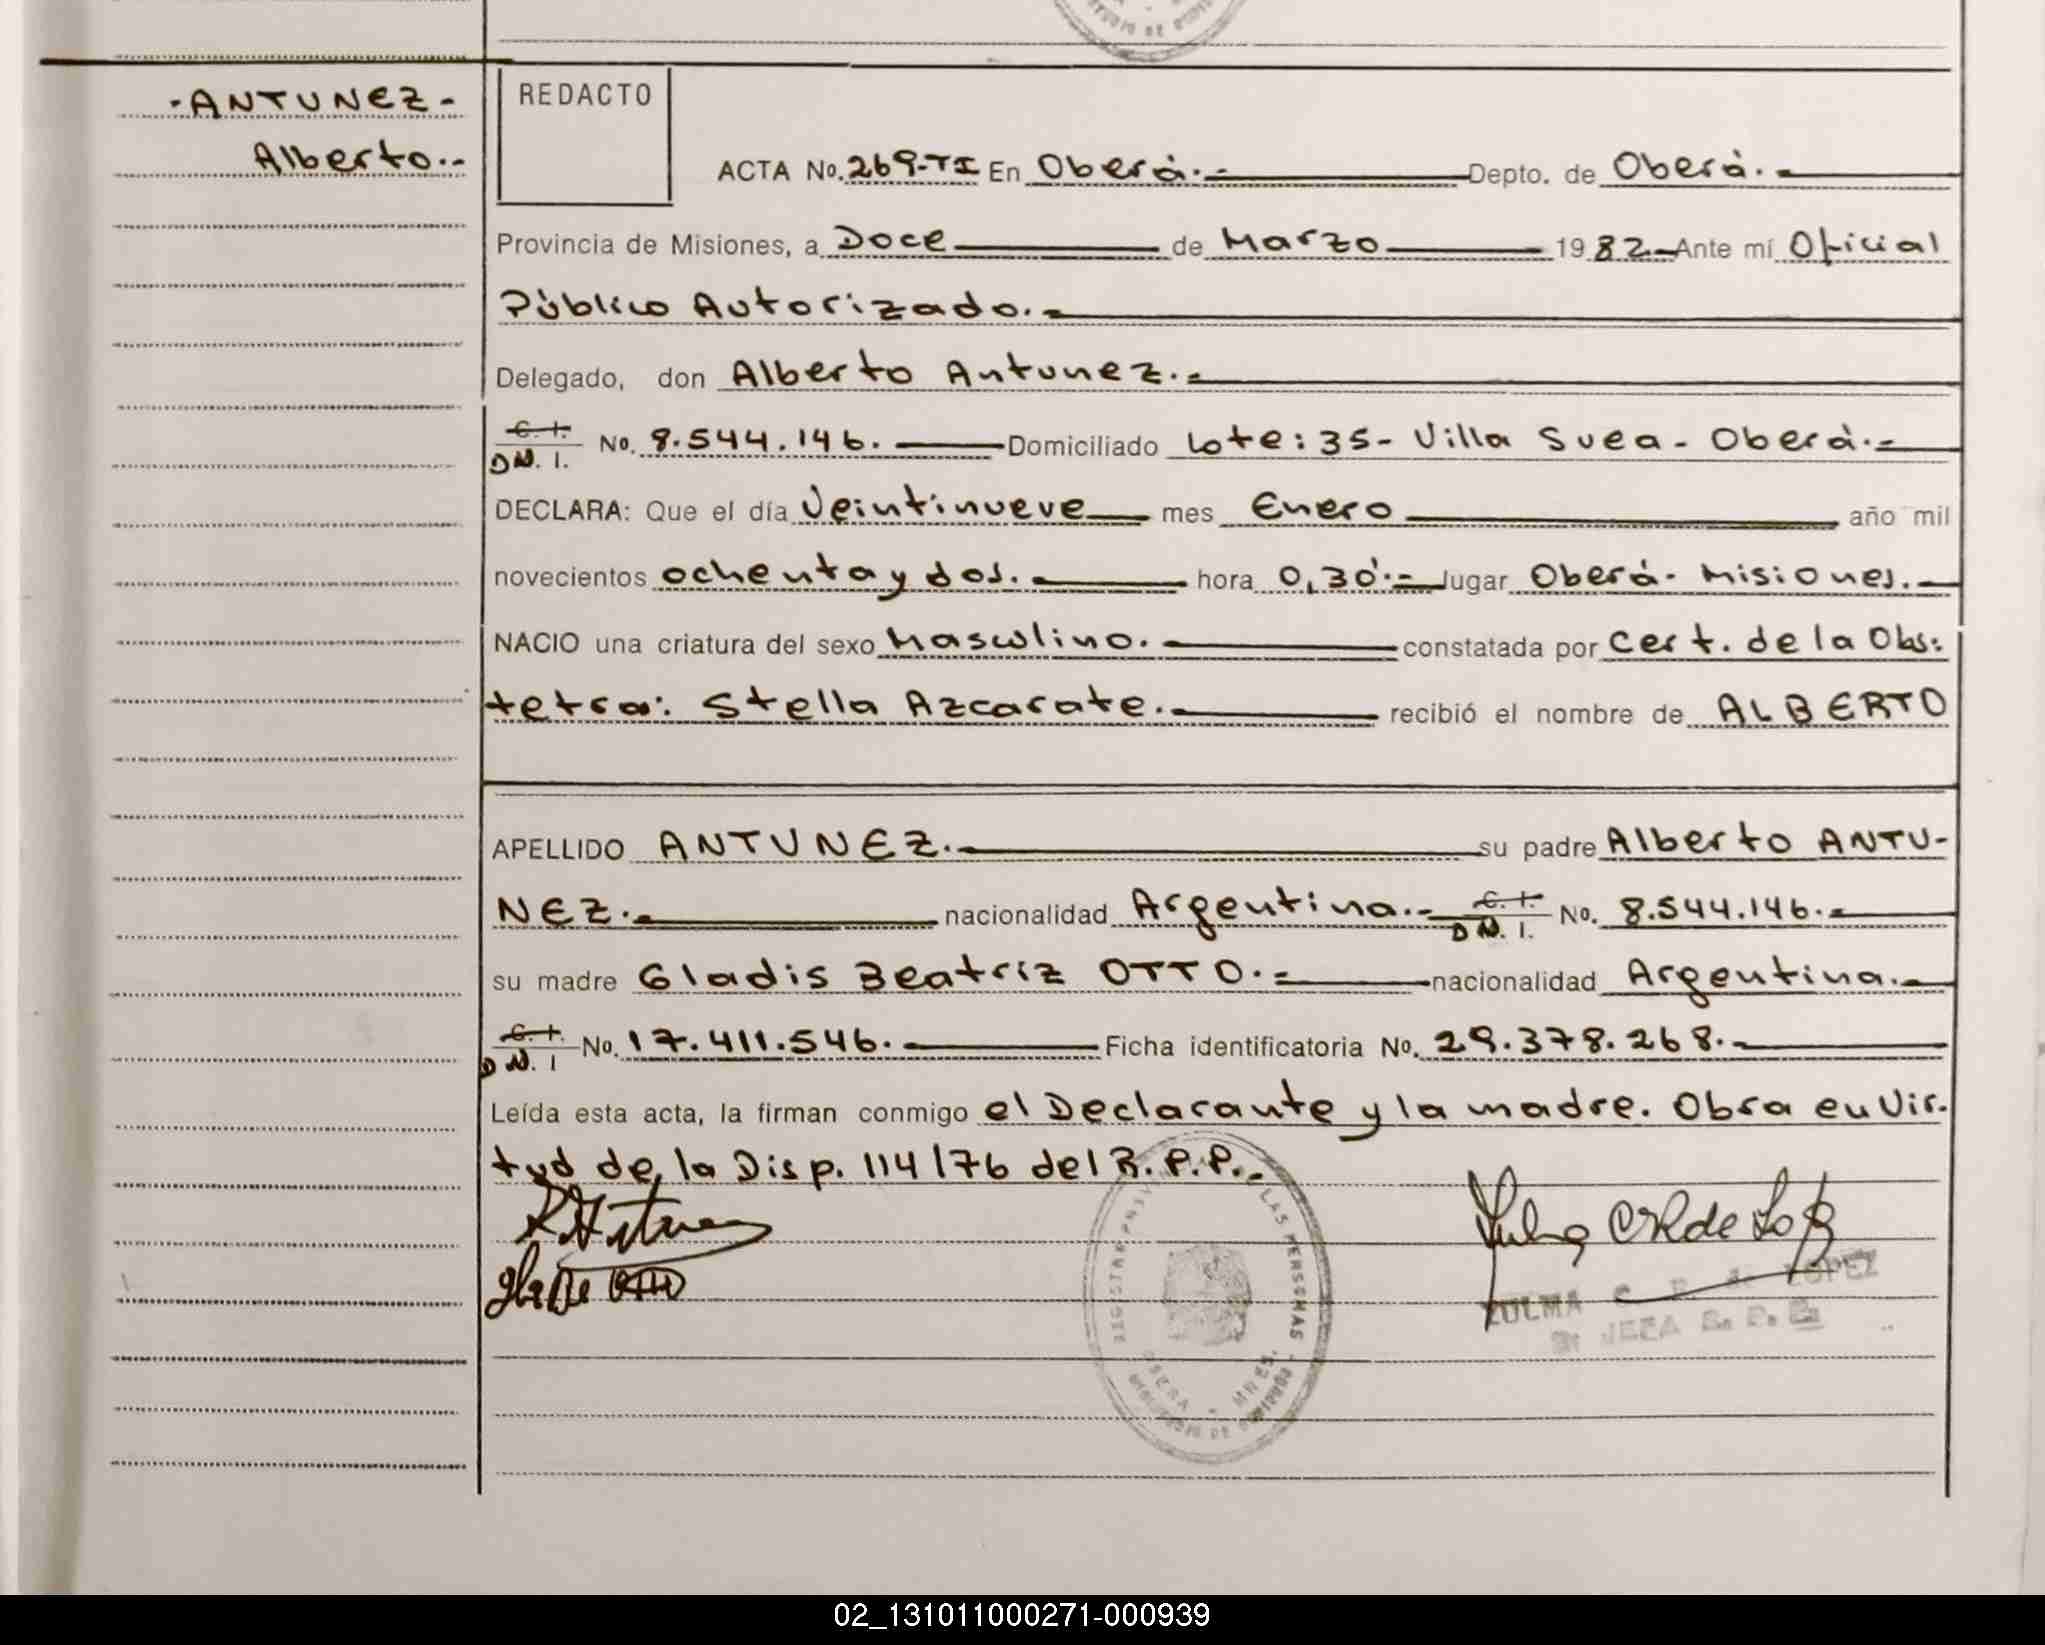 -ANTUNEZ-
Alberto.-
REDACTO
ACTA No. 269-TI En Oberá.- Depto. de Oberá.-
Provincia de Misiones, a Doce de Marzo 1982 Ante mí Oficial
Público Autorizado.-
Delegado, don Alberto Antunez.-
C. I.
D N. I. No. 8.544.146. Domiciliado Lote: 35- Villa Svea- Oberá.-
DECLARA: Que el día Veintinueve mes Enero año mil
novecientos ochenta y dos. hora 0,30'.- lugar Oberá- Misiones.-
NACIO una criatura del sexo Masculino. constatada por Cert. de la Obs:
tetra: Stella Azcarate.- recibió el nombre de ALBERTO
APELLIDO ANTUNEZ.- su padre Alberto ANTU-
NEZ.- nacionalidad Argentina.- C. I. D N. I. No. 8.544.146.-
su madre Gladis Beatriz OTTO.- nacionalidad Argentina.-
C. I. D N. I No. 17.411.546. Ficha identificatoria No. 29.378.268.-
Leída esta acta, la firman conmigo el Declarante y la madre. Obra en Vir-
tud de la Disp. 114/76 del R.P.P..-
ZULMA C. R. de LOPEZ
LAS PERSONAS
OBERA - MNES.
02_131011000271-000939